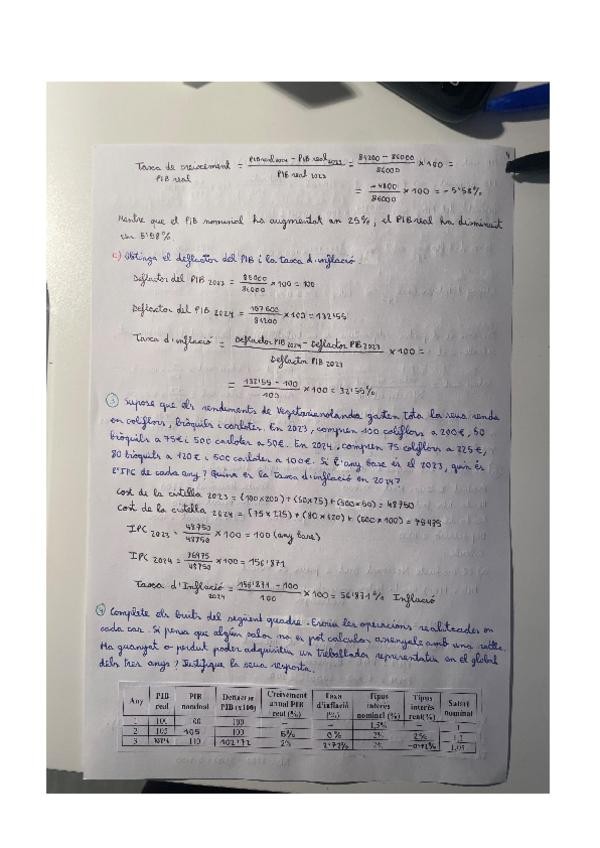 4
Taxa de creixement PIB real = (PIB real 2024 - PIB real 2023) / PIB real 2023 = (81200 - 86000) / 86000 × 100 =
= -4800 / 86000 × 100 = -5'58%
Mentre que el PIB nominal ha augmentat un 25%, el PIB real ha disminuït
un 5'58%.
c) Obtinga el deflactor del PIB i la taxa d'inflació.
Deflactor del PIB 2023 = 86000 / 86000 × 100 = 100
Deflactor del PIB 2024 = 107600 / 81200 × 100 = 132'55
Taxa d'inflació = (Deflactor PIB 2024 - Deflactor PIB 2023) / Deflactor PIB 2023 × 100 =
= (132'55 - 100) / 100 × 100 = 32'55%
③ Supose que els rendiments de Vegetarianolandia gasten tota la seua renda
en coliflors, bròquils i carlotes. En 2023, compren 100 coliflors a 200€, 50
bròquils a 75€ i 500 carlotes a 50€. En 2024, compren 75 coliflors a 225€,
80 bròquils a 120€ i 500 carlotes a 100€. Si l'any base és el 2023, quin és
l'IPC de cada any? Quina és la taxa d'inflació en 2024?
Cost de la cistella 2023 = (100×200) + (50×75) + (500×50) = 48750
Cost de la cistella 2024 = (75×225) + (80×120) + (500×100) = 76475
IPC 2023 = 48750 / 48750 × 100 = 100 (any base)
IPC 2024 = 76475 / 48750 × 100 = 156'871
Taxa d'Inflació 2024 = (156'871 - 100) / 100 × 100 = 56'871% Inflació
④ Complete els buits del següent quadre. Escriu les operacions realitzades en
cada cas. Si pensa que algún valor no es pot calcular assenyale amb una ratlla.
Ha guanyat o perdut poder adquisitiu un treballador representatiu en el global
dels tres anys? Justifique la seua resposta.
Any PIB real PIB nominal Deflactor PIB (x100) Creixement anual PIB real (%) Taxa d'inflació (%) Tipus interés nominal (%) Tipus interés real(%) Salari nominal
1 100 100 100 - - 1,5% - 1
2 105 105 100 5% 0% 2% 2% 1,1
3 110 102'72 2% 2'72% 2% -0'72% 1,05